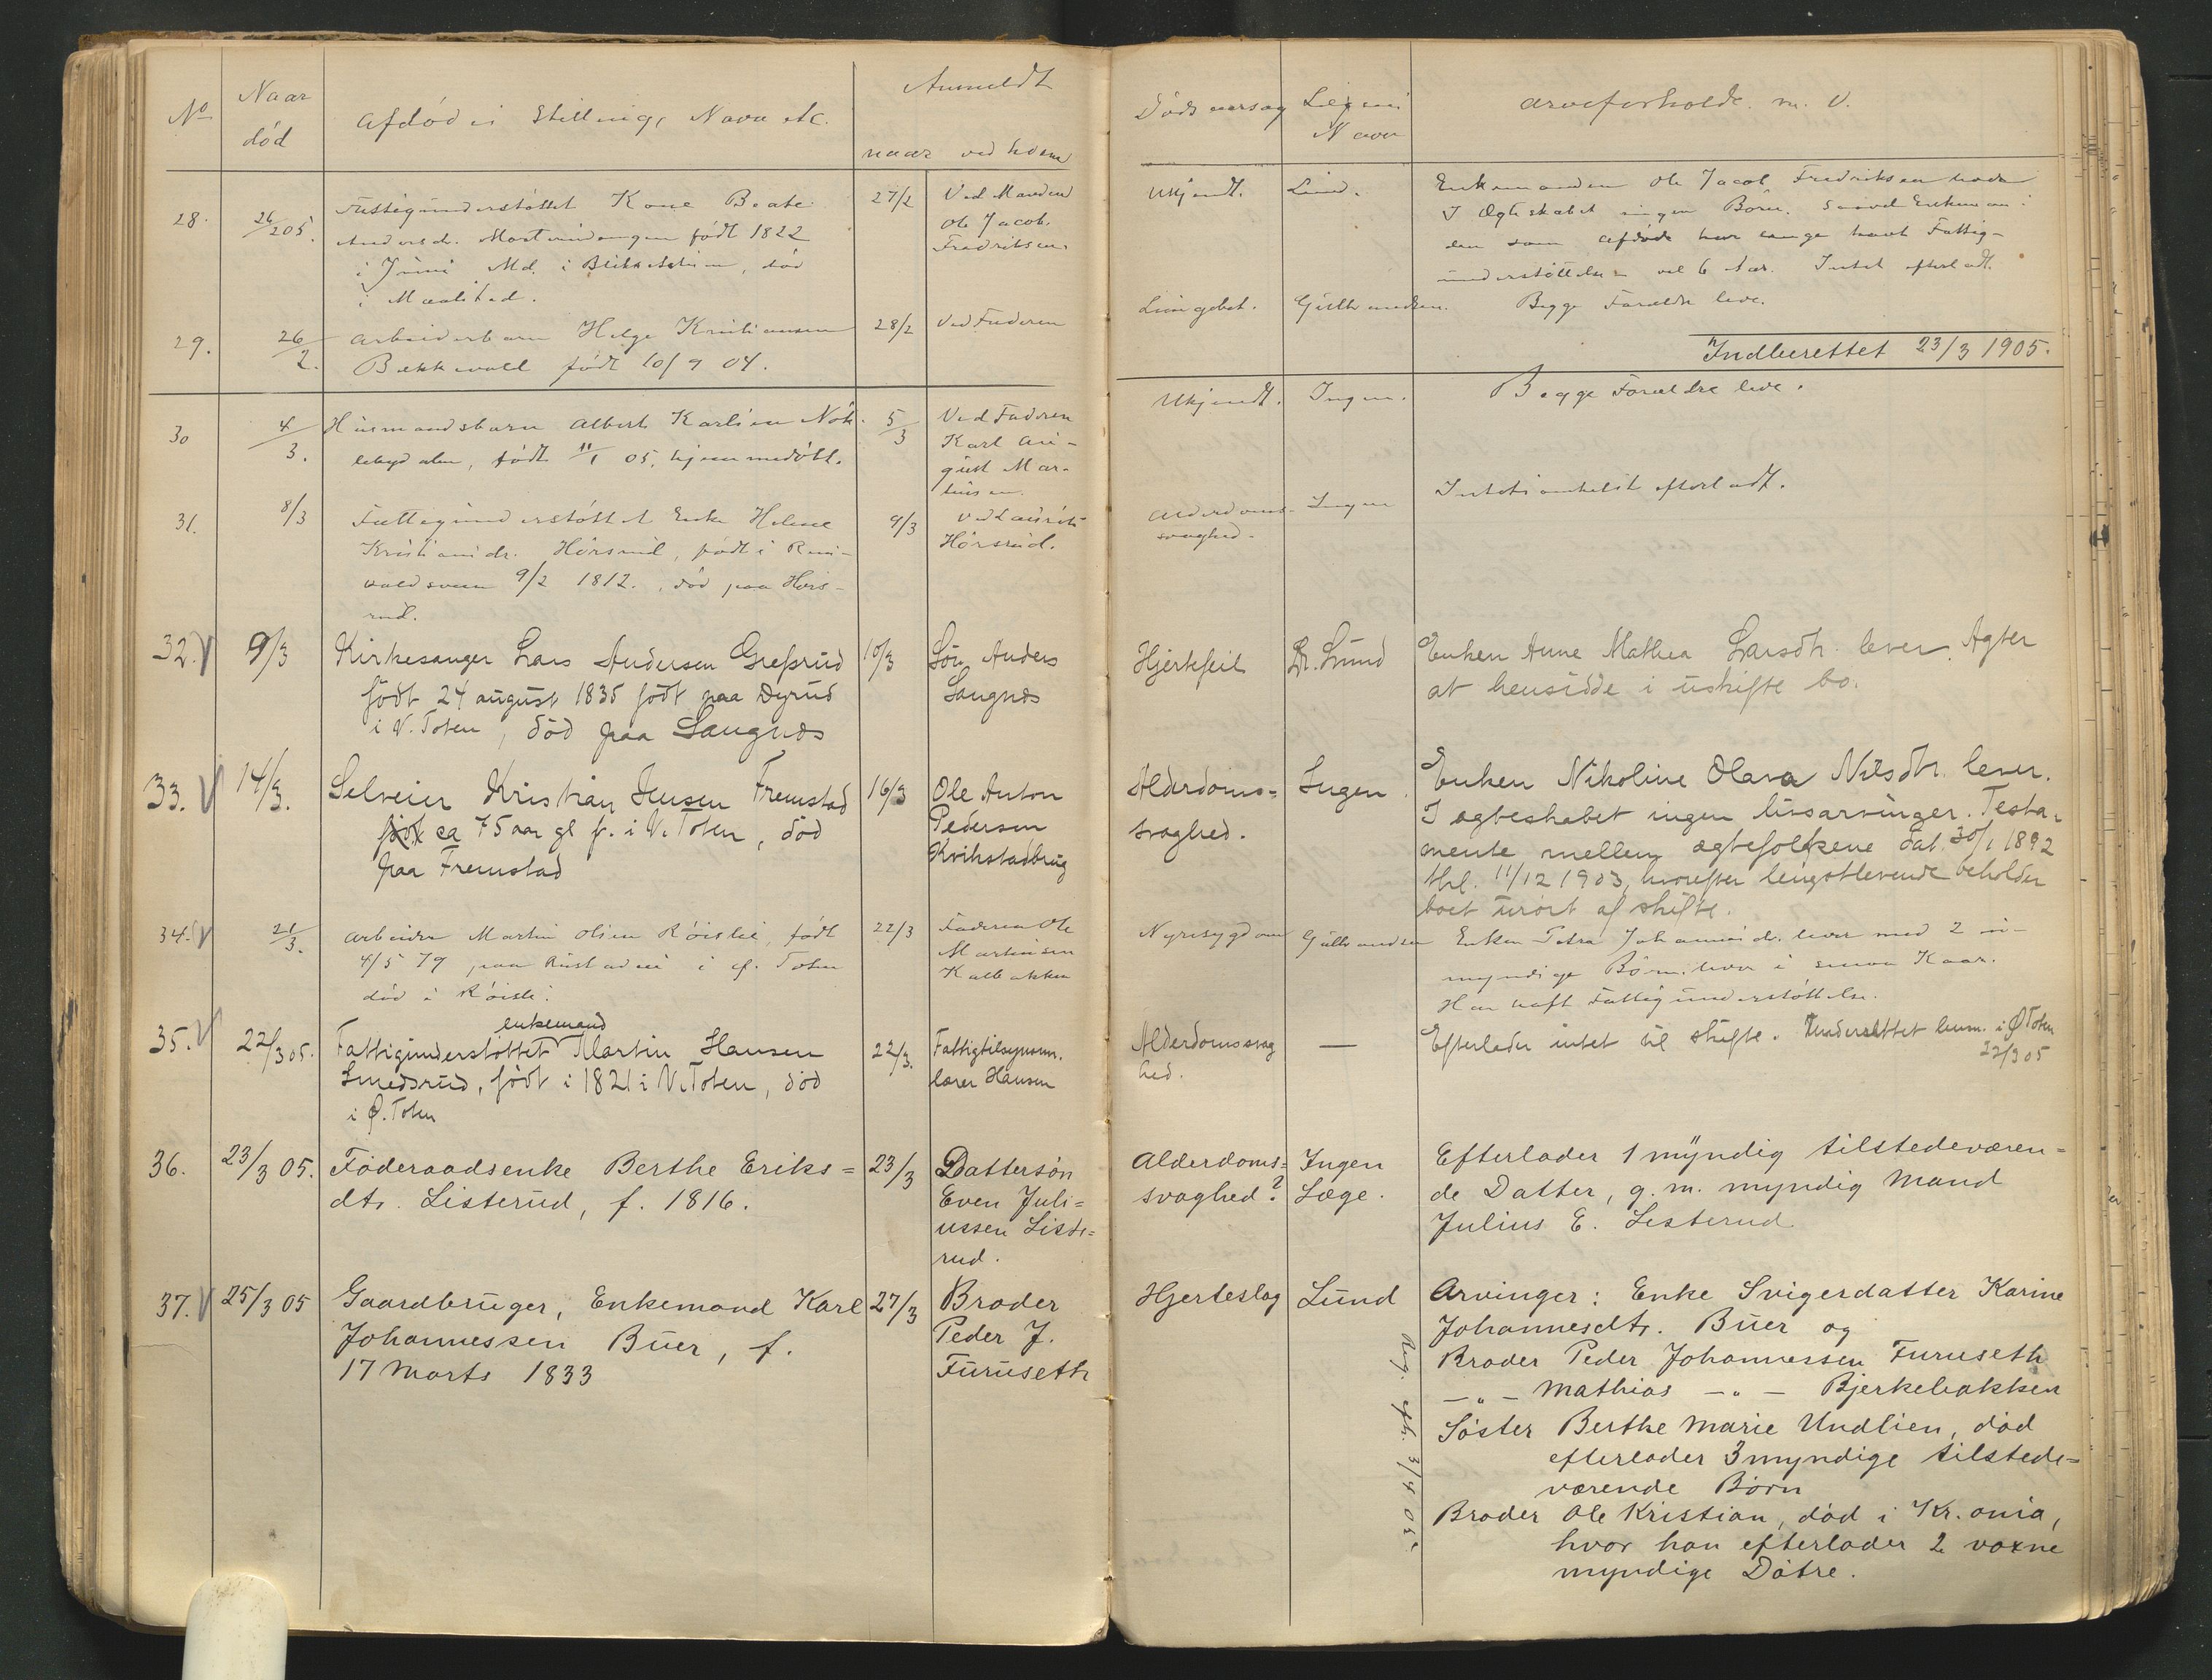 No
Naar
død
Afdødes Stilling, Navn etc.
Anmeldt
naar ved hvem
28.
26/2 05.
Fattigunderstøttet Kone Beate
Andersd. født 1822
i Juni Md. i , død
i
27/2
Ved Manden
Ole Jacob
Fredriksen
29.
26/2.
Arbeiderbarn Helge Kristiansen
Bækkevold født 10/9 04.
28/2
Ved Faderen
30
4/3.
Husmandsbarn Albert Karlsen Nøk-
lebydalen, født 11/1 05, hjemmedøbt.
5/3
Ved Faderen
Karl Au-
gust Mar-
tinsen.
31.
8/3
Fattigunderstøttet Enke Helene
Kristiansdr. Hørsrud, født i
9/2 1812., død paa Hørs-
rud.
9/3
Ved Laurits
Hørsrud.
32. V
9/3
Kirkesanger Lars Andersen Grefsrud
født 24 august 1835 født paa Dyrud
i V. Toten, død paa Sangnæs
10/3
Søn Anders
Sangnæs
33. V
14/3.
Selveier Kristian Jensen Fremstad
født ca 75 aar gl f. i V. Toten, død
paa Fremstad
16/3
Ole Anton
Pedersen
Kvikstadbrug
34. V
21/3.
Arbeider Martin Olsen Røislie, født
4/5 79 paa i Ø. Toten
død i Røisli.
22/3
Faderen Ole
Martinsen
Kalbakken
35. V
22/3 05.
enkemand
Fattigunderstøttet Martin Hansen
Smedsrud, født i 1821 i V. Toten, død
i Ø. Toten
22/3.
Fattigtilsynsm.
lærer Hansen
36.
23/3 05.
Føderaadsenke Berthe Eriks=
dtr. Listerud, f. 1816.
23/3
Dattersøn
Even Juli=
ussen Liste=
rud.
37. V
25/3 05
Gaardbruger, Enkemand Karl
Johannessen Buer, f.
17 Marts 1833
27/3
Broder
Peder J.
Furuseth
Dødsaarsag
Lægens
Navn
Arveforholde m. V.
Ukjendt.
Lund.
Enkemanden Ole Jacob Fredriksen
I Ægteskabet ingen Børn. Saavel Enkeman-
den som Afdøde har længe havt Fattig-
understøttelse vel 6 Aar. Intet efterladt.
Lungebet.
Gulbrandsen.
Begge Forældre leve.
Indberettet 23/3 1905.
Ukjendt.
Ingen.
Begge Forældre leve.
Alderdoms-
svaghed.
Ingen
Intetsomhelst efterladt.
Hjertefeil
Dr. Lund
Enken Anne Mathea Larsdtr. lever. Agter
at hensidde i uskifte bo.
Alderdoms=
svaghed.
Ingen.
Enken Nikoline Olava Nilsdtr. lever.
I ægteskabet ingen livsarvinger. Testa-
mente mellem ægtefolkene dat. 30/1 1892
thl. 11/12 1903, hvorefter længstlevende beholder
boet urørt af skifte.
Nyresygdom
Gulbrandsen
Enken Petra Johannesd. lever med 2 u-
myndige Børn. lever i smaa Kaar.
Har havt Fattigunderstøttelse.
Alderdomssvag
hed.
—
Efterlader intet til skifte. Underrettet lensm. i Ø Toten
22/3 05
Alderdoms=
svaghed?
Ingen
Læge.
Efterlader 1 myndig tilstedeværen=
de Datter, g. m. myndig Mand
Julius E. Listerud
Hjerteslag
Lund
Arvinger: Enke Svigerdatter Karine
Johannesdtr. Buer og
Broder Peder Johannessen Furuseth
—„— Mathias —„— Bjerkebakken
Søster Berthe Marie Undlien, død
efterlader 3 myndige tilstede=
værende Børn
Broder Ole Kristian, død i Kr.ania,
hvor han efterlader 2 voxne
myndige Døtre.
3/4 05.